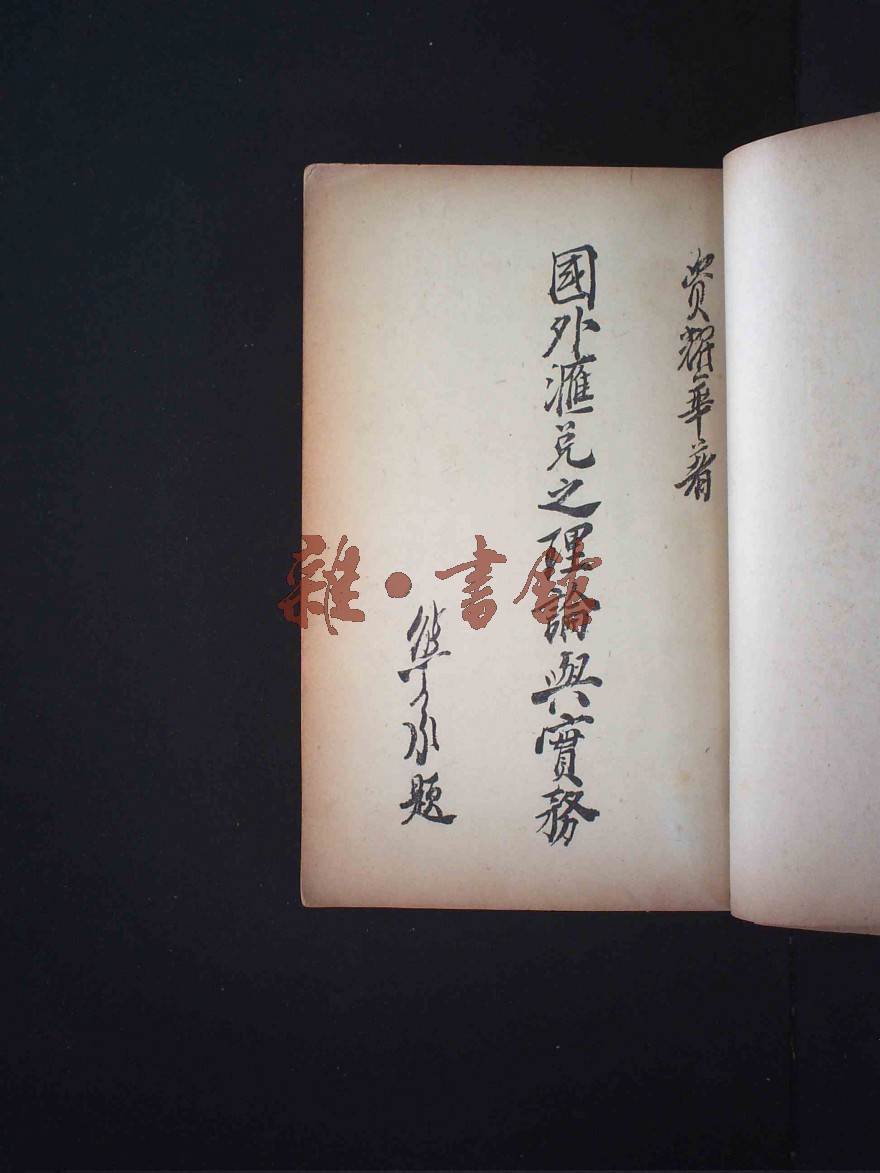 耀華著
國外滙兑之理論與實務
題
雜·書館